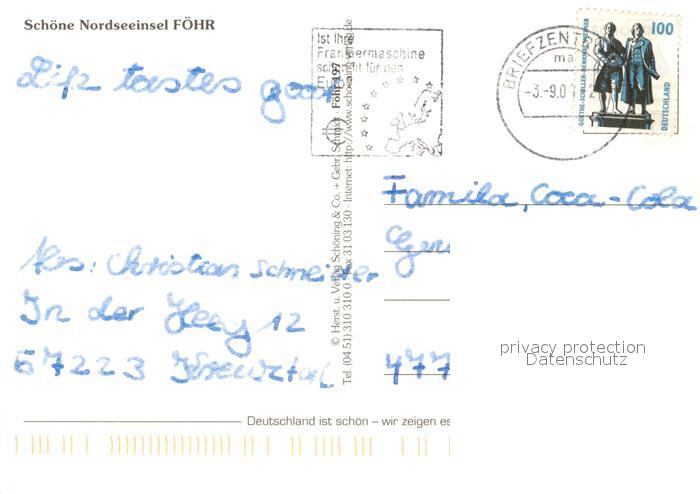 Schöne Nordseeinsel FÖHR
Life tastes good
Ist Ihre
Frankiermaschine
schon fit für den
BRIEFZENTRUM
-3.-9.0
100
GOETHE-SCHILLER-DENKMAL WEIMAR
DEUTSCHLAND
Familа, Coca-Cola
Abs: Christian Schneider
In der Heeg 12
57223 Kreuztal
477
Föhr 197
© Herst. u. Verlag Schöning & Co. + Gebr. Schmidt
Tel. (04 51) 310 310 0 · Fax 31 03 130 · Internet: http://www.schoening-verlag.de
privacy protection
Datenschutz
Deutschland ist schön – wir zeigen es